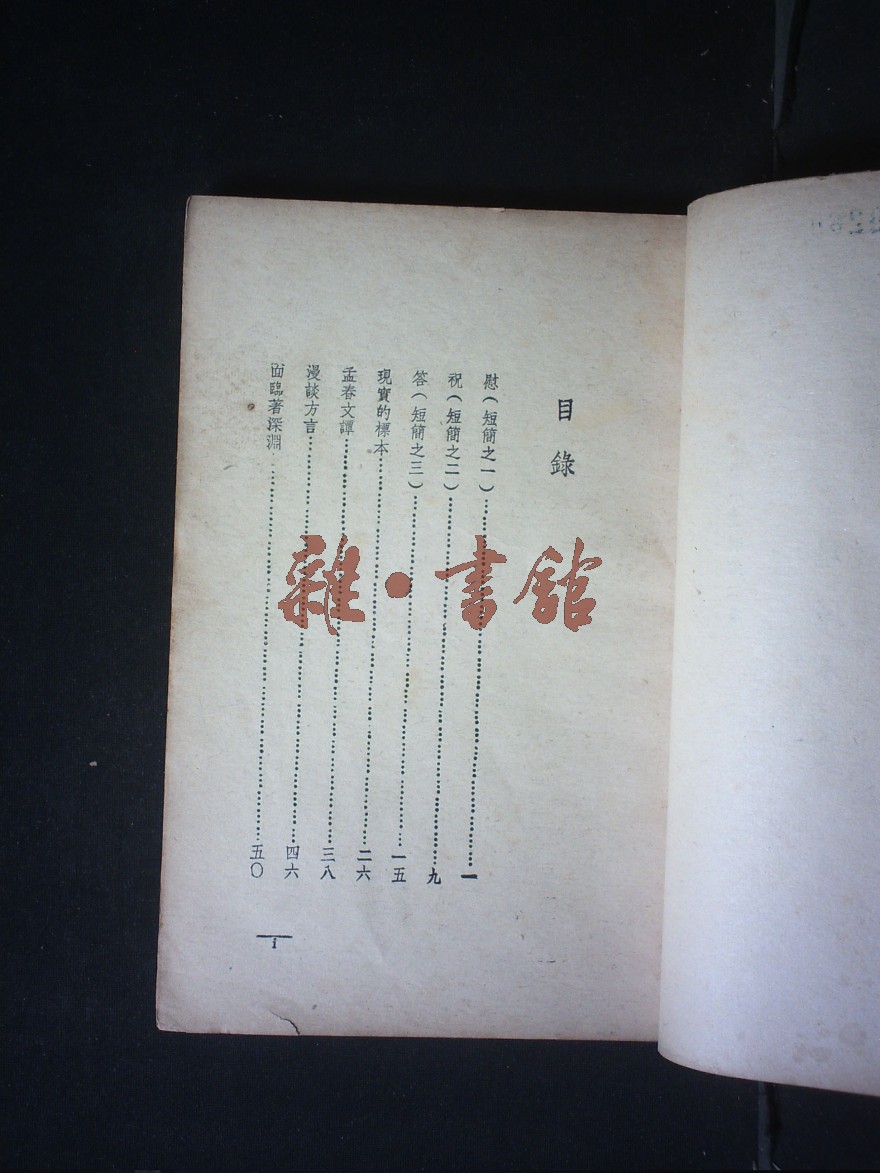 目錄
慰(短簡之一)一
祝(短簡之二)九
答(短簡之三)一五
現實的標本二六
孟春文譚三八
漫談方言四六
面臨著深淵五〇
i
雜·書館